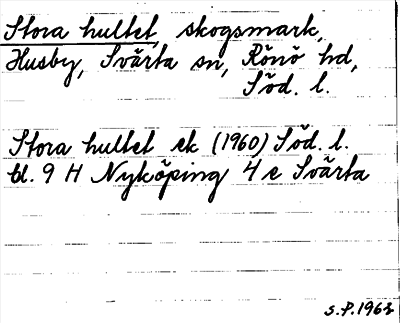 Stora hultet, skogsmark,
Husby, Svärta sn, Rönö hd,
Söd. l.
Stora hultet ek (1960) Söd. l.
bl. 9 H Nyköping 4 e Svärta
S.P. 1963